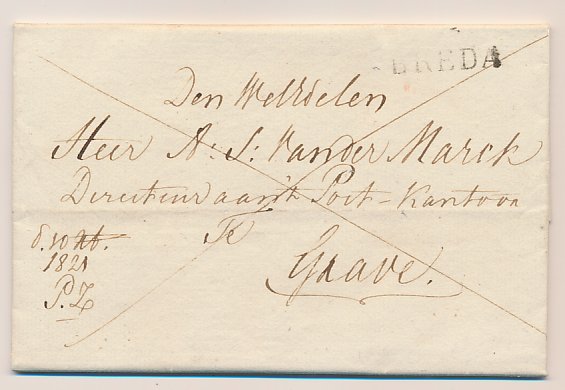 BREDA
Den WelEdelen
Heer A: S: Vander Marck
Directeur aan't Post-Kantoor
Te
Grave.
d. 10
1821
P.Z